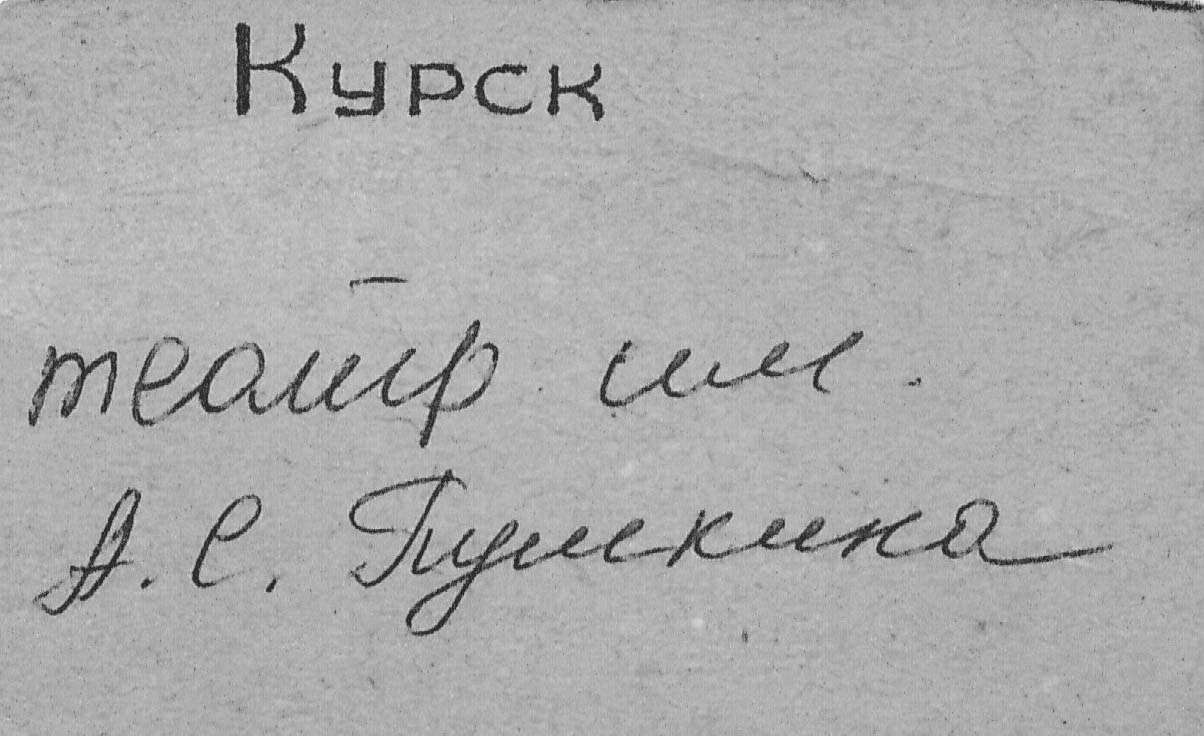 Курск
театр им.
А.С. Пушкина